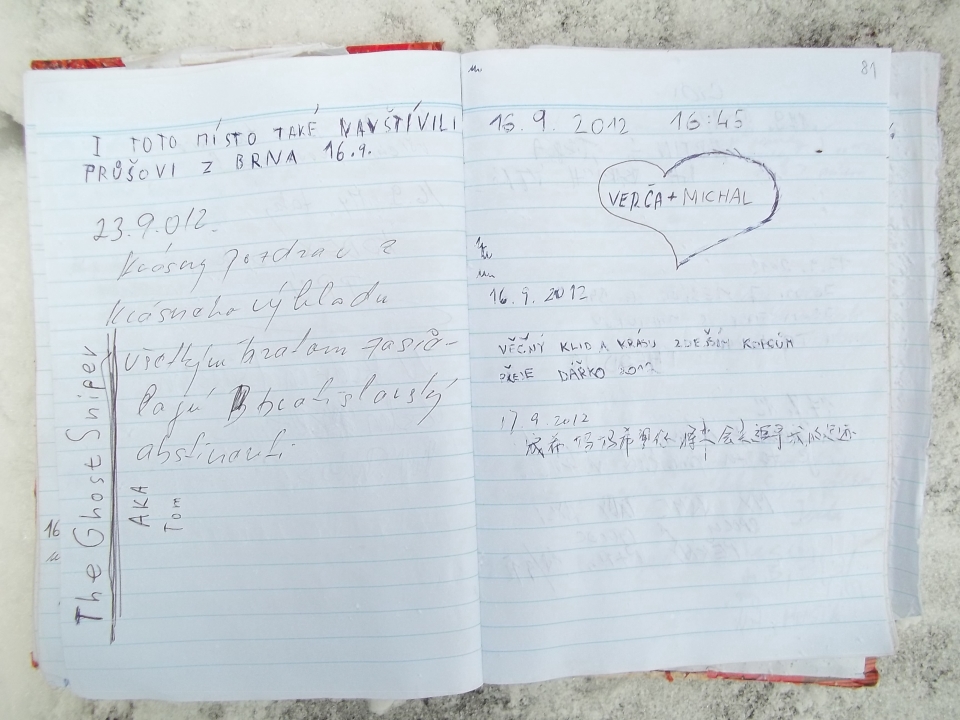 I TOTO MÍSTO TAKÉ NAVŠTÍVILI
PRŮŠOVI Z BRNA 16.9.
23.9.012.
Krásny pozdrav z
krásneho výhladu
všetkým bratom zasie-
lajú bratislavský
abstinenti
The Ghost Sniper
AKA
Tom
16
81
16.9. 2012 16:45
VERČA + MICHAL
16.9.2012
VĚČNÝ KLID A KRÁSU ZDEJŠÍM
PŘEJE DÁŘKO 2012
17.9.2012
希望你